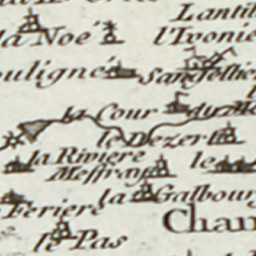 Lantil
la Noë
l'Ivonie
ouligné
la Cour du
le Dezert
la Riviere
le
Meffray
la Galbour
Feriere
Chan
le Pas